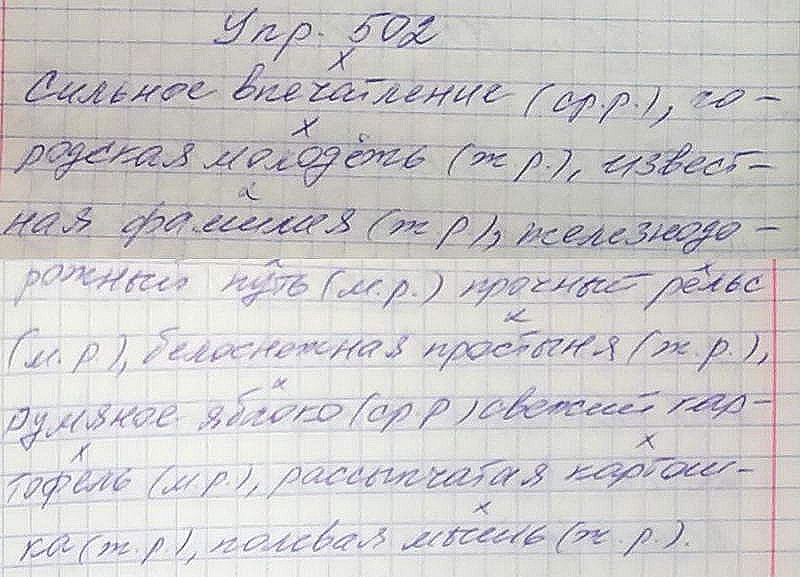 Упр. 502
Сильное впечатление (ср.р.), го-
родская молодёжь (ж р.), извест-
ная фамилия (ж р), железнодо-
рожный путь (м.р.) прочный рельс
(м.р), белоснежная простыня (ж.р.),
румяное яблоко (ср р) свежий кар-
тофель (м р.), рассыпчатая картош-
ка (ж.р), полевая мышь (ж.р.).